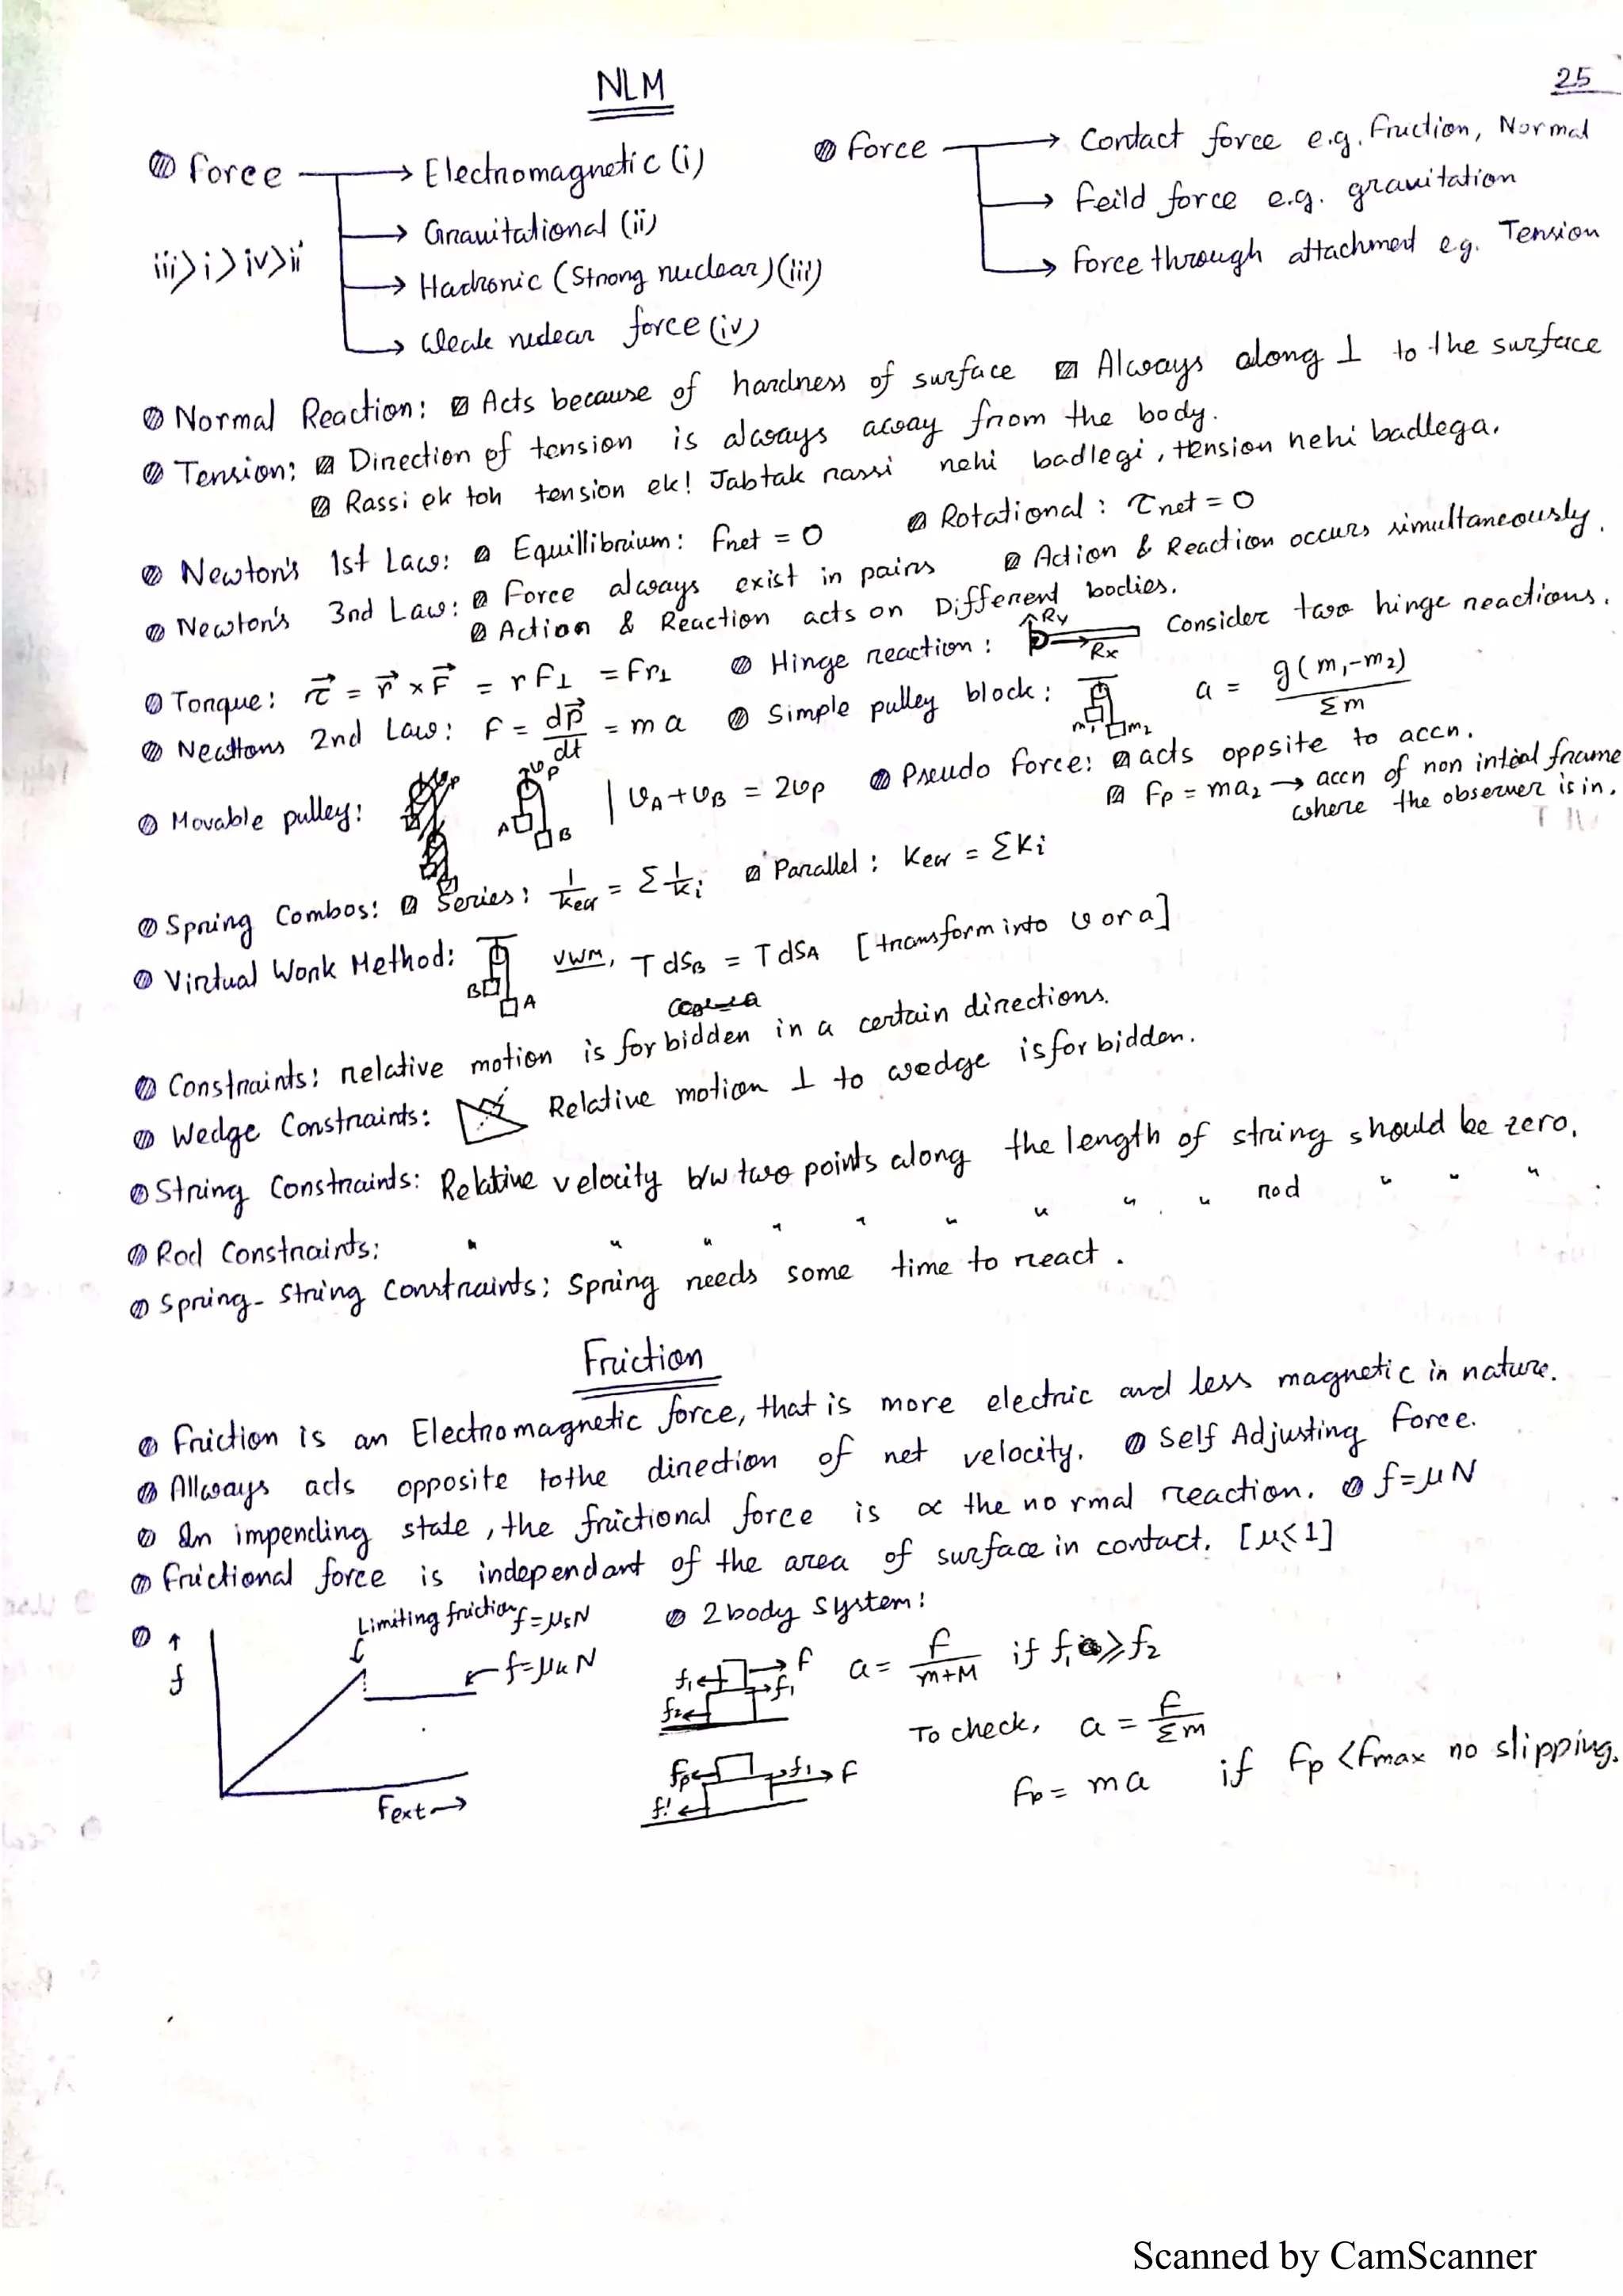 NLM
25
Force → Electromagnetic (i)
→ Gravitational (ii)
iii > i > iv > ii
→ Hadronic (Strong nuclear) (iii)
→ Weak nuclear force (iv)
Force → Contact force e.g. Friction, Normal
→ Feild force e.g. gravitation
→ Force through attachment e.g. Tension
Normal Reaction: Acts because of hardness of surface Always along ⊥ to the surface
Tension: Direction of tension is always away from the body.
Rassi ek toh tension ek! Jabtak rassi nehi badlegi, tension nehi badlega.
Newton's 1st Law: Equillibrium: Fnet = 0 Rotational: τnet = 0
Newton's 3rd Law: Force always exist in pairs Action & Reaction occurs simultaneously.
Action & Reaction acts on Different bodies.
Torque: τ⃗ = r⃗ × F⃗ = r F⊥ = Fr⊥ Hinge reaction: Ry Rx Consider two hinge reactions.
Newtons 2nd Law: F = dp⃗/dt = ma Simple pulley block: m₁ m₂ a = g(m₁-m₂)/Σm
Movable pulley: vp P A B | vA + vB = 2vp Pseudo Force: acts oppsite to accn.
Fp = ma₂ → accn of non intial frame
where the observer is in.
Spring Combos: Series: 1/keq = Σ 1/ki Parallel: Keq = Σki
Virtual Work Method: B A VWM, T dSB = T dSA [transform into v or a]
Constraints: relative motion is forbidden in a certain directions.
Wedge Constraints: Relative motion ⊥ to wedge is forbidden.
String Constraints: Relative velocity b/w two points along the length of string should be zero.
Rod Constraints: " " " " " " " " " rod " " "
Spring-String Constraints: Spring needs some time to react.
Friction
Friction is an Electromagnetic force, that is more electric and less magnetic in nature.
Allways acts opposite to the direction of net velocity. Self Adjusting Force.
In impending state, the frictional force is ∝ the normal reaction. f = μN
Frictional force is independant of the area of surface in contact. [μ≤1]
↑ f Limiting friction f = μsN
f = μkN
Fext →
2 body System:
f₁ F f₁ f₂ a = F/m+M if f₁ ≥ f₂
To check, a = F/Σm
Fp f₁ F f' Fp = ma if Fp < fmax no slipping.
Scanned by CamScanner